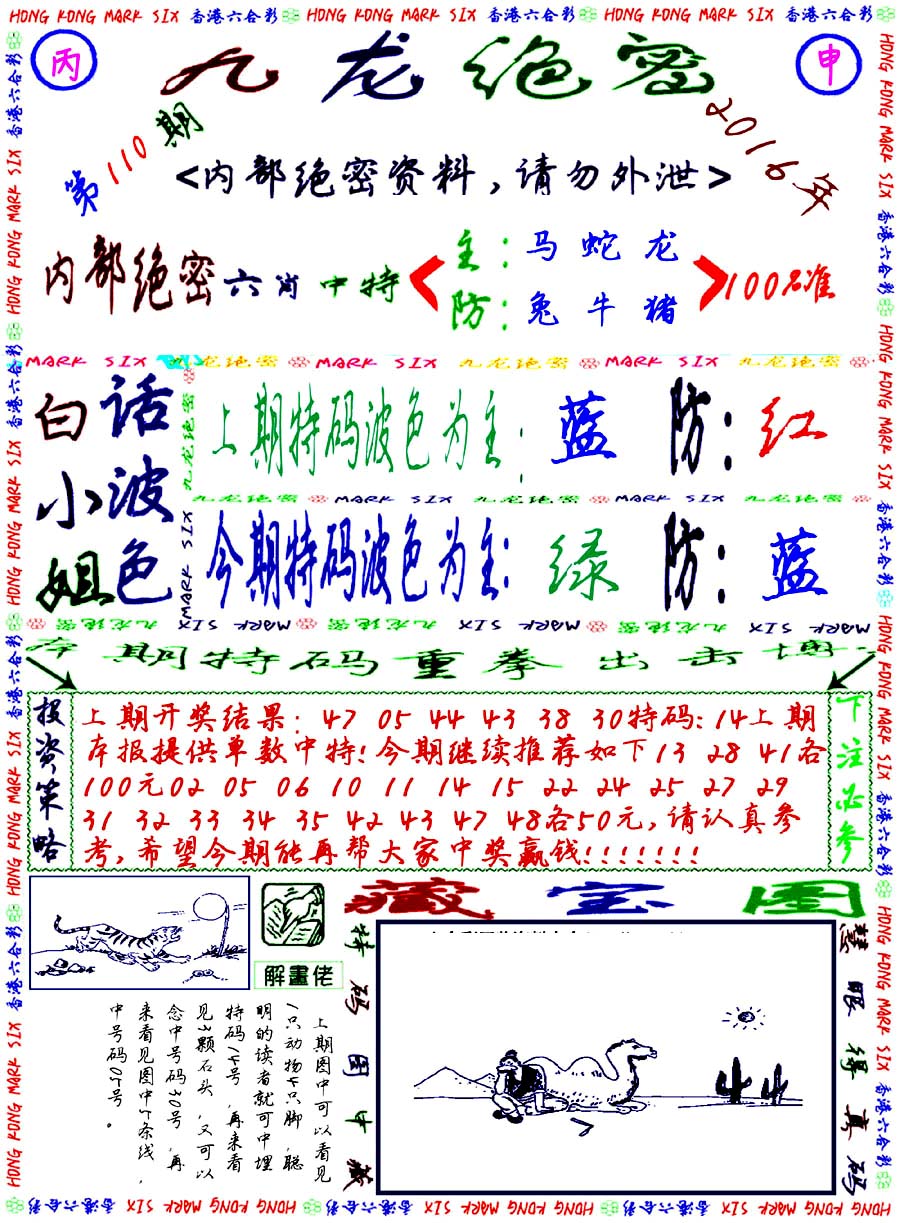 HONG KONG MARK SIX 香港六合彩 HONG KONG MARK SIX 香港六合彩 HONG KONG MARK SIX 香港六合彩
丙
九龙绝密
申
第110期
2016年
<内部绝密资料,请勿外泄>
内部绝密六肖中特
主:马蛇龙
防:兔牛猪
100%准
MARK SIX 九龙绝密 MARK SIX 九龙绝密 MARK SIX 九龙绝密
白小姐
话波色
上期特码波色为主:蓝 防:红
九龙绝密 MARK SIX 九龙绝密 MARK SIX 九龙绝密
今期特码波色为主:绿 防:蓝
MARK SIX 九龙绝密 MARK SIX 九龙绝密 MARK SIX 九龙绝密
本期特码重拳出击博
投资策略
上期开奖结果: 47 05 44 43 38 30特码:14上期
本报提供单数中特!今期继续推荐如下13 28 41各
100元02 05 06 10 11 14 15 22 24 25 27 29
31 32 33 34 35 42 43 47 48各50元,请认真参
考,希望今期能再帮大家中奖赢钱!!!!!!!
下注必参
藏宝图
解畫佬
上期图中可以看见
1只动物4只脚,聪
明的读者就可中埋
特码14号,再来看
见3颗石头,又可以
念中号码30号,再
来看见图中5条线,
中号码05号。
特码图中藏
慧眼得真码
HONG KONG MARK SIX 香港六合彩 HONG KONG MARK SIX 香港六合彩 HONG KONG MARK SIX 香港六合彩